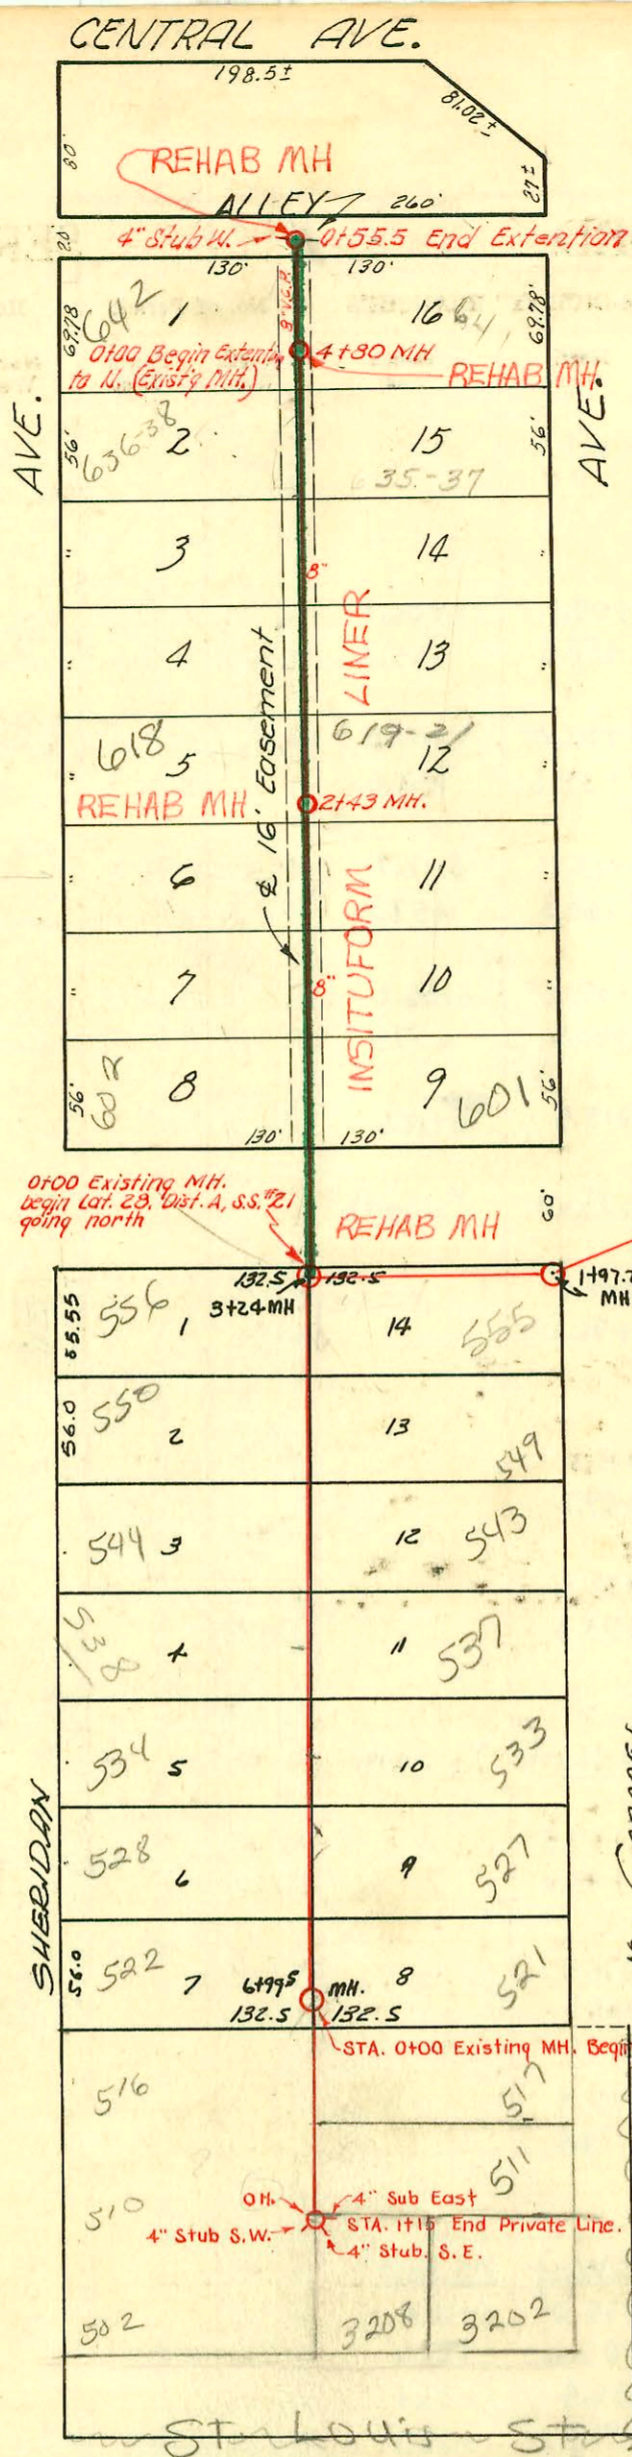 CENTRAL AVE.
198.5±
81.02±
80'
27±
REHAB MH
ALLEY
260'
20
4" Stub W.
0+55.5 End Extention
130'
130'
8" V.C.P.
69.78
642
1
16
69.78'
0+00 Begin Extent.
to N. (Exist'g MH.)
4+80 MH
REHAB MH.
AVE.
AVE.
56'
636-38
2
15
635-37
56'
"
3
14
"
8"
"
4
13
"
LINER
℄ 16' Easement
618
5
619-21
12
"
REHAB MH
2+43 MH.
"
6
11
"
INSITUFORM
"
7
8"
10
"
56'
602
8
9
601
56'
130'
130'
0+00 Existing MH.
begin Lat. 28, Dist. A, S.S. #21
going north
REHAB MH
60'
132.5
132.5
1+97.7
MH
3+24 MH
55.55
556
1
14
555
56.0
550
2
13
549
544
3
12
543
538
4
11
537
534
5
10
533
528
6
9
527
SHERIDAN
56.0
522
7
6+99⁵
MH.
8
521
132.5
132.5
STA. 0+00 Existing MH. Begin
516
517
511
510
O.H.
4" Sub East
4" Stub S.W.
STA. 1+15 End Private Line.
4" Stub. S.E.
502
3208
3202
St. Louis St